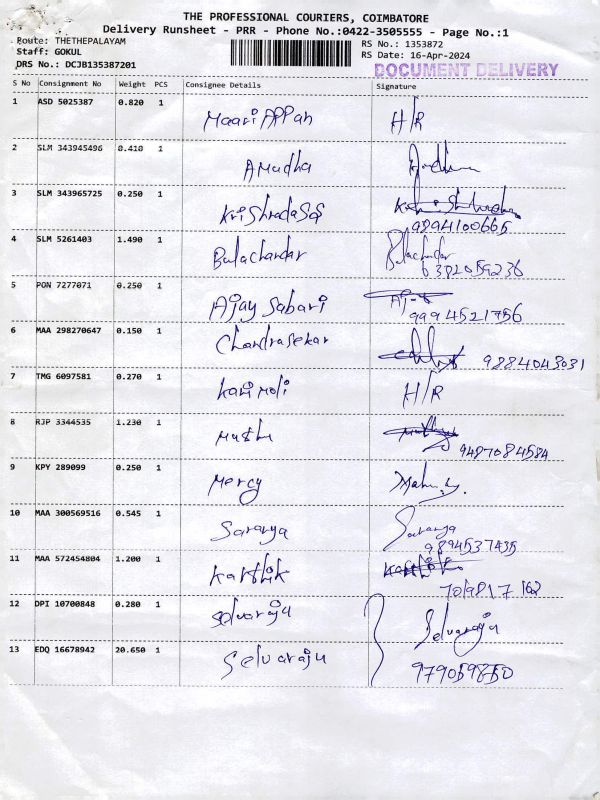 THE PROFESSIONAL COURIERS, COIMBATORE
Delivery Runsheet - PRR - Phone No.:0422-3505555 - Page No.:1
Route: THETHEPALAYAM
RS No.: 1353872
Staff: GOKUL
RS Date: 16-Apr-2024
DRS No.: DCJB135387201
DOCUMENT DELIVERY
S No Consignment No Weight PCS Consignee Details Signature
1 ASD 5025387 0.820 1 Maari APPan H/R
2 SLM 343945496 0.410 1 Amudha
3 SLM 343965725 0.250 1 Krishnadass
9894100665
4 SLM 5261403 1.490 1 Balachandar Balachandar
6382059236
5 PON 7277071 0.250 1 Ajay Sabari
9994521756
6 MAA 298270647 0.150 1 Chandrasekar 9884043031
7 TMG 6097581 0.270 1 Kanimoli H/R
8 RJP 3344535 1.230 1 Muthu
9487084584
9 KPY 289099 0.250 1 Mercy
10 MAA 300569516 0.545 1 Saranya Saranya
9894537435
11 MAA 572454804 1.200 1 Karthik Karthik
12 DPI 10700848 0.280 1 Selvaraju Selvaraju
13 EDQ 16678942 20.650 1 Selvaraju
979059850